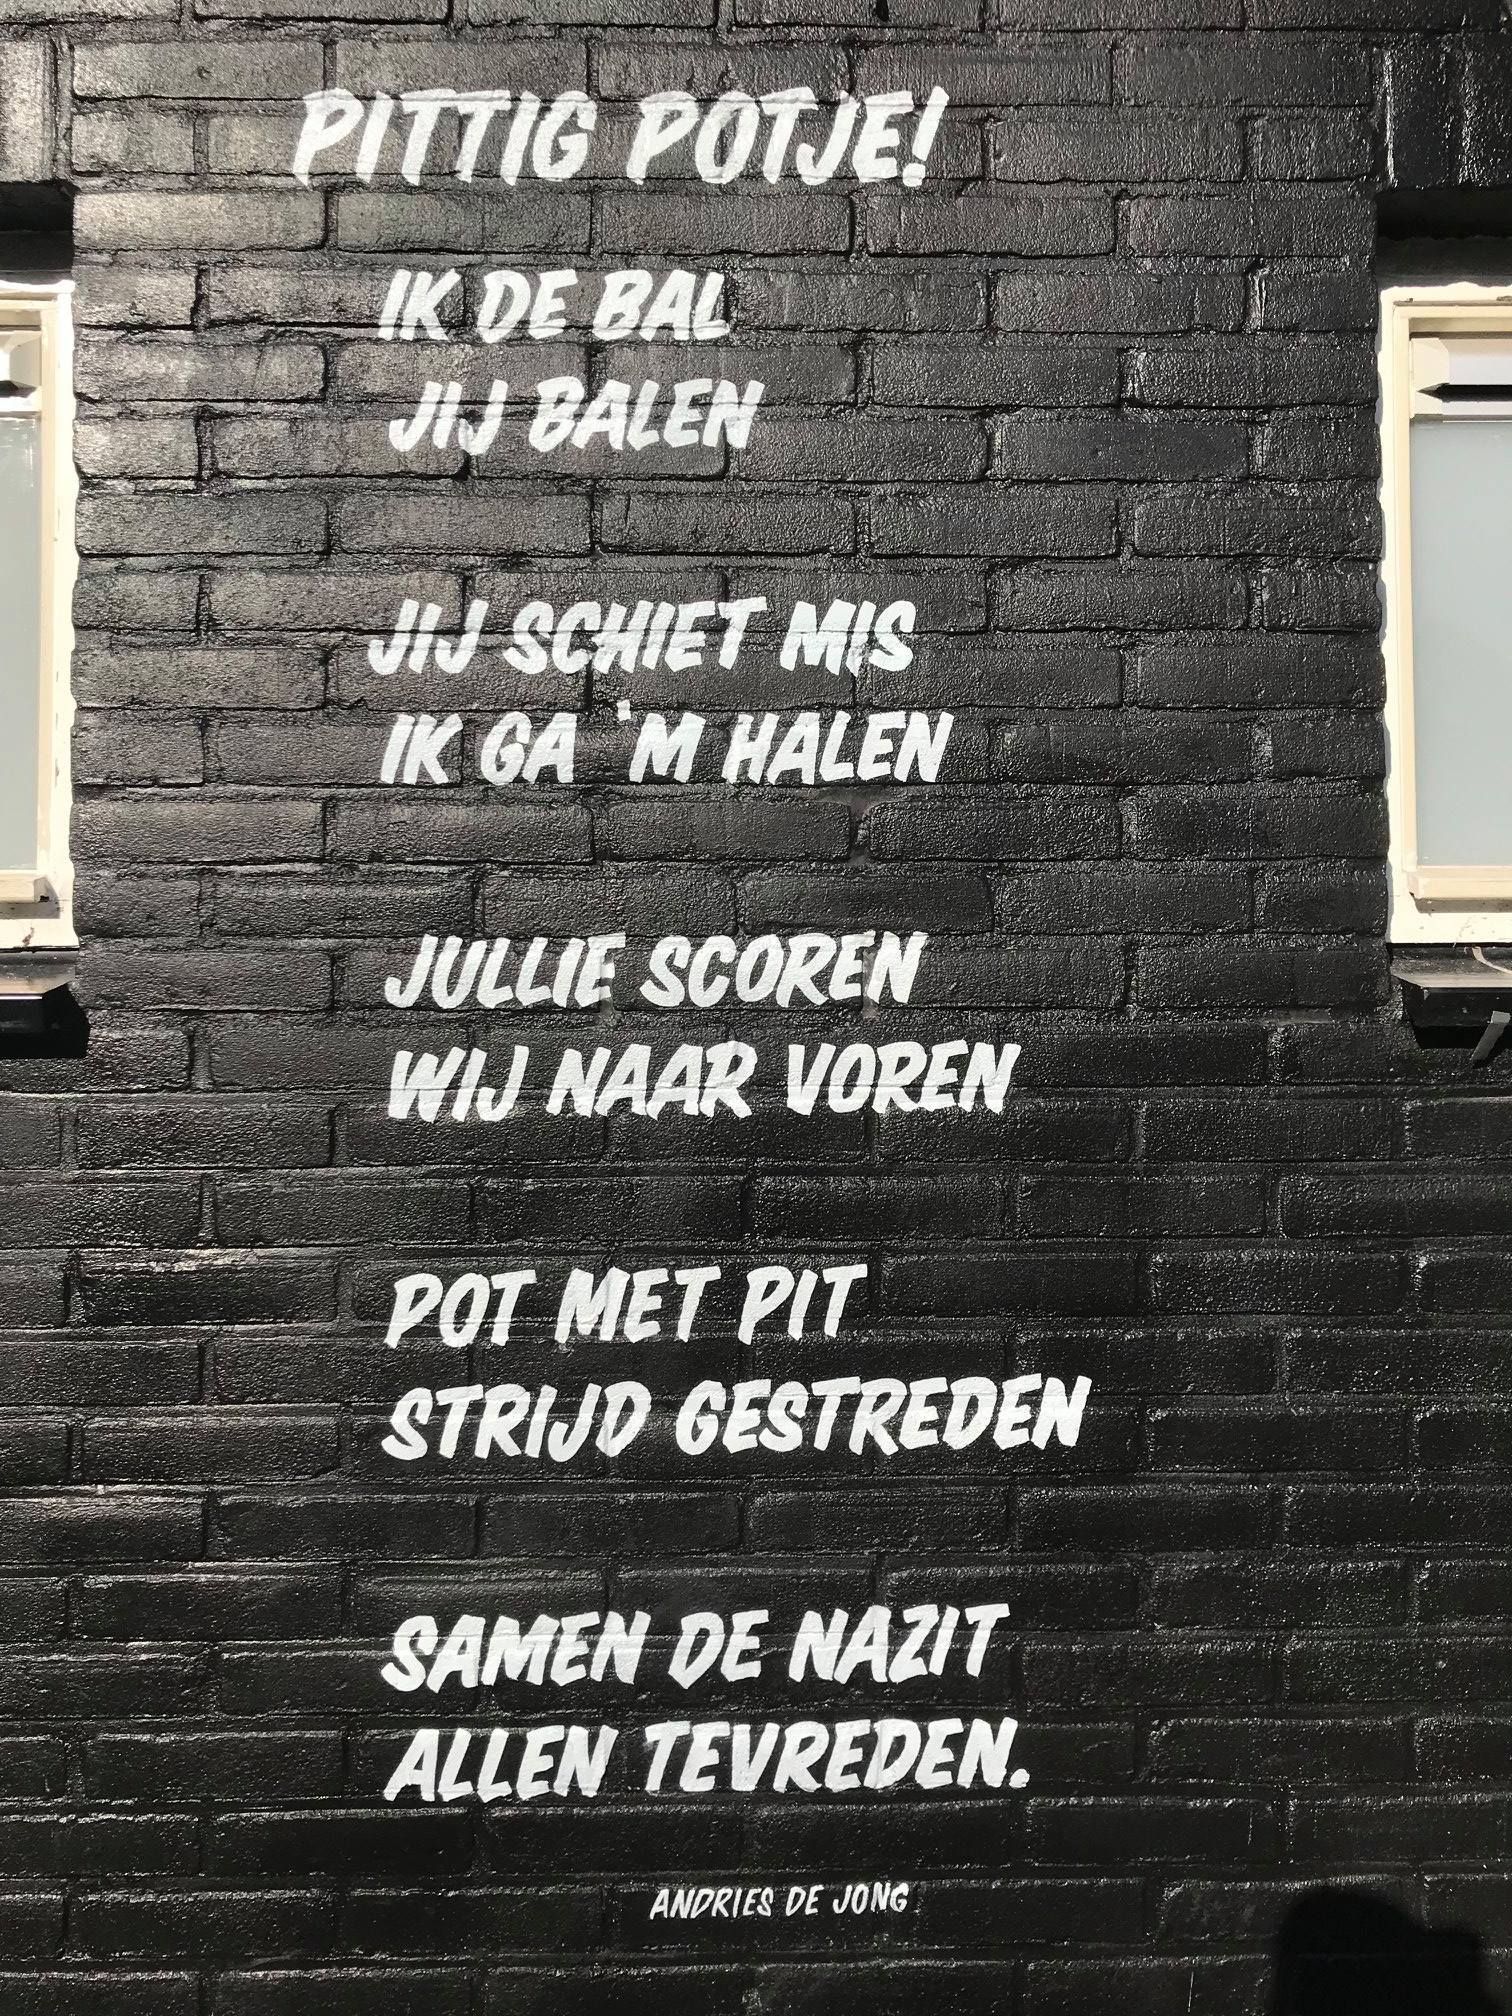 PITTIG POTJE!
IK DE BAL
JIJ BALEN
JIJ SCHIET MIS
IK GA 'M HALEN
JULLIE SCOREN
WIJ NAAR VOREN
POT MET PIT
STRIJD GESTREDEN
SAMEN DE NAZIT
ALLEN TEVREDEN.
ANDRIES DE JONG